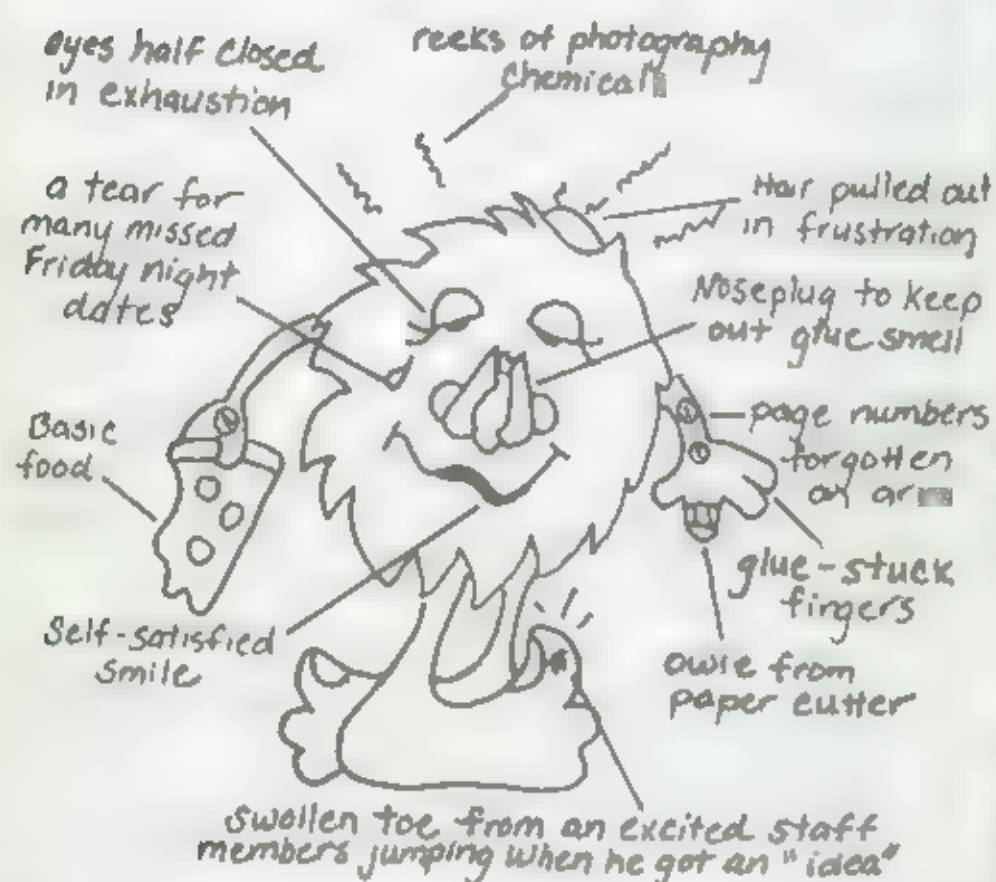 eyes half closed
in exhaustion
reeks of photography
chemicals
a tear for
many missed
Friday night
dates
Hair pulled out
in frustration
Noseplug to keep
out glue smell
Basic
food
page numbers
forgotten
on arm
glue-stuck
fingers
Self-satisfied
smile
owie from
paper cutter
swollen toe from an excited staff
members jumping when he got an "idea"